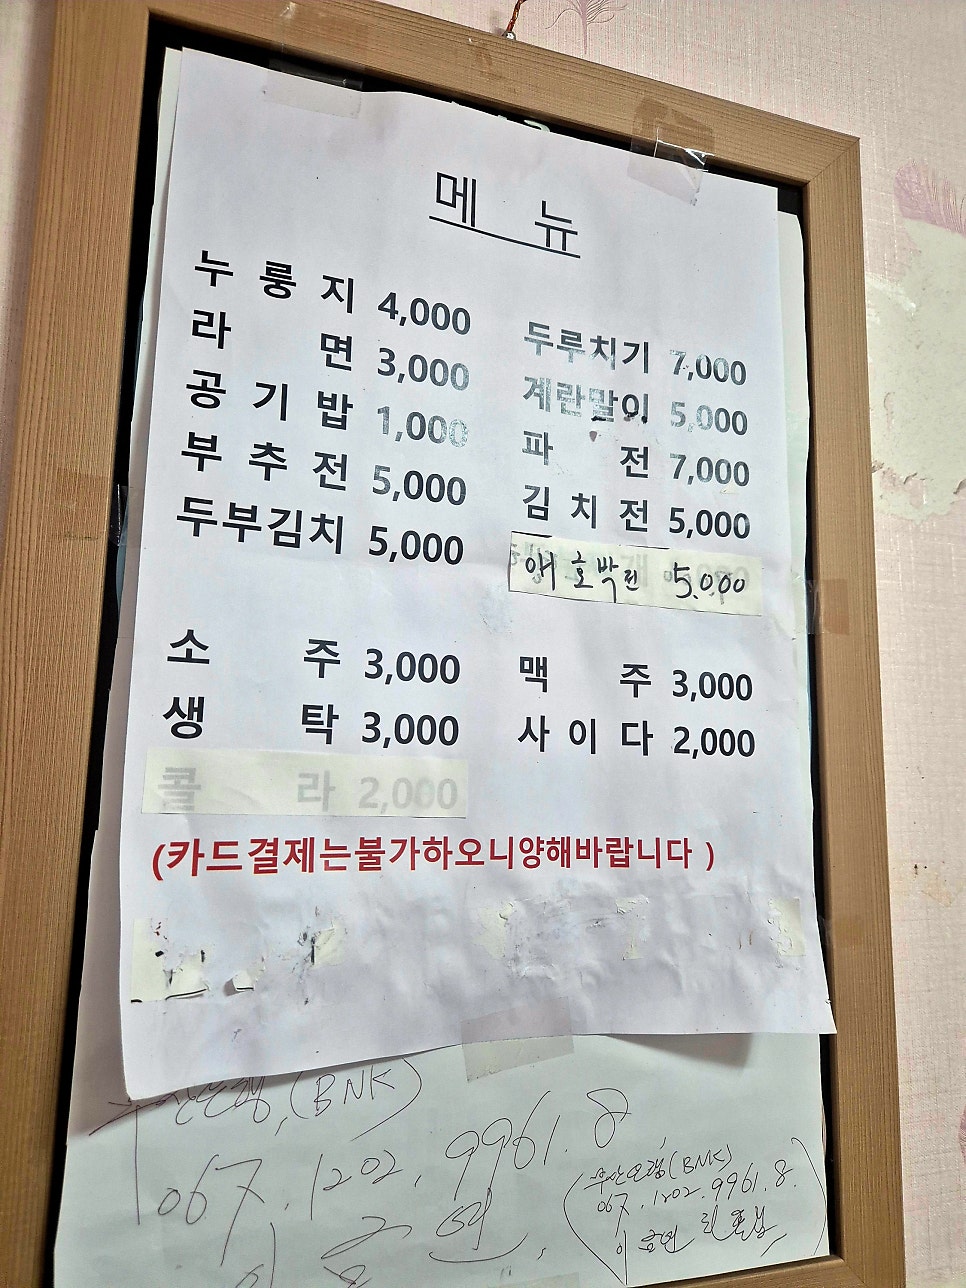 메 뉴
누 룽 지 4,000
라 면 3,000
공 기 밥 1,000
부 추 전 5,000
두부김치 5,000
두루치기 7,000
계란말이 5,000
파 전 7,000
김 치 전 5,000
애 호박전 5.000
소 주 3,000
생 탁 3,000
콜 라 2,000
맥 주 3,000
사 이 다 2,000
(카드결제는불가하오니양해바랍니다 )
부산은행,(BNK)
067.1202.9961.8
(부산은행(BNK)
067.1202.9961.8.